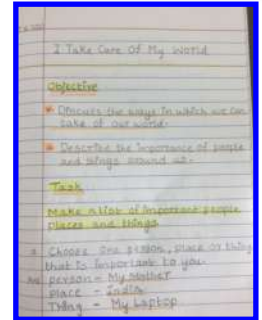 I Take Care Of My World
Objective
Discuss the ways in which we can
take of our world.
Describe the importance of people
and things around us.
Task
Make a list of important people
places and things
Choose one person, place or thing
that is important to you.
person - My Mother
Place - India
Thing - My Laptop